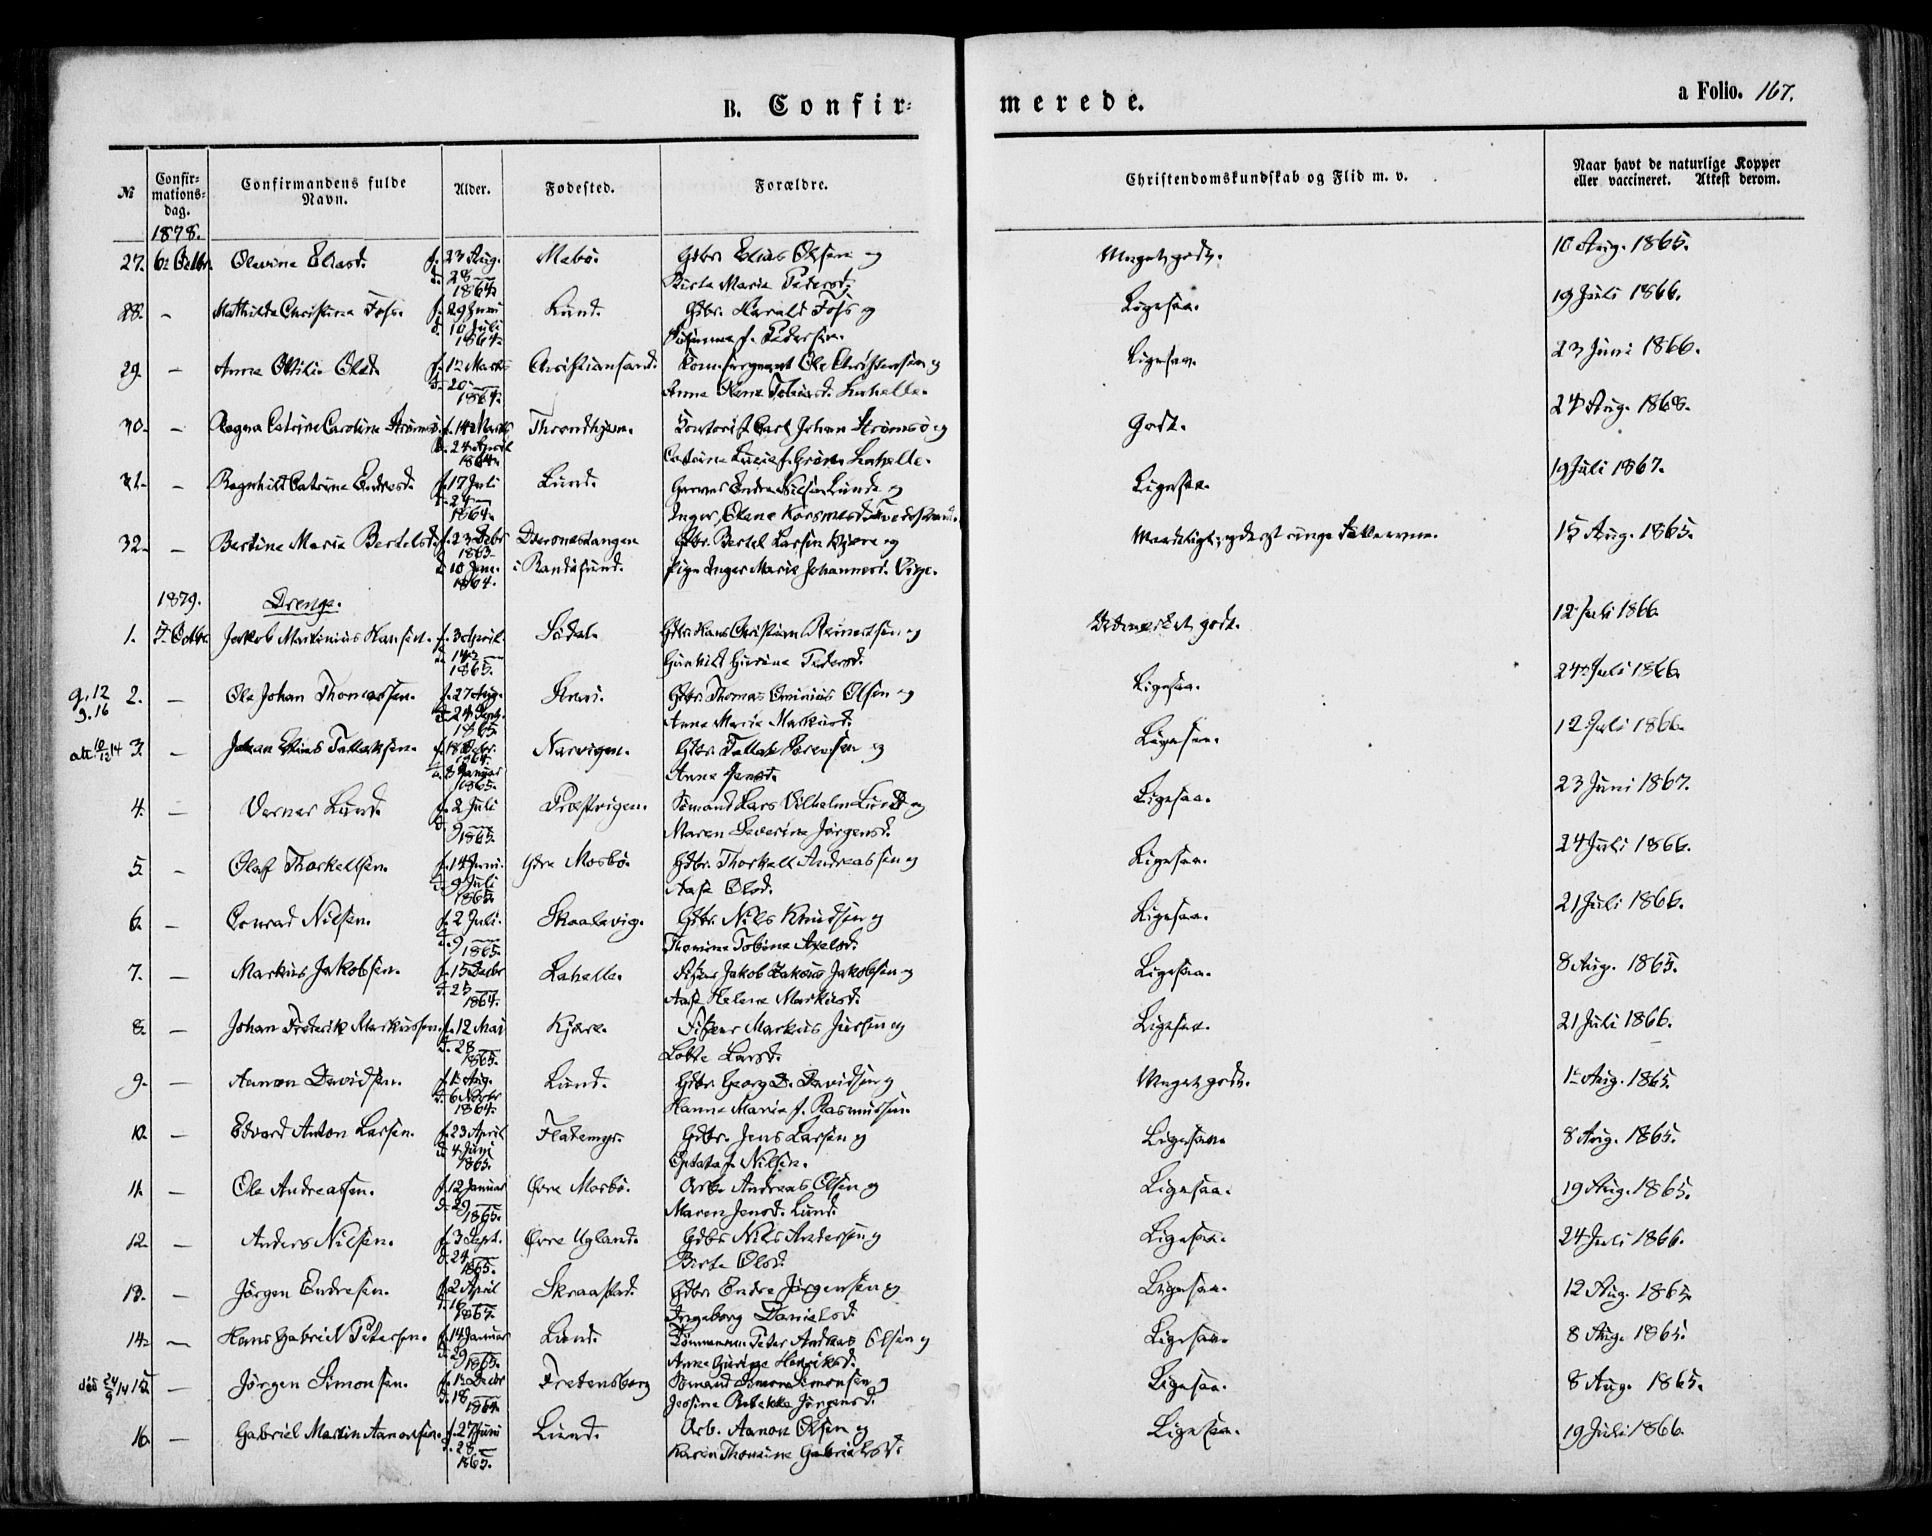 B. Confir-
merede.
a Folio. 167.
№
Confir-
mations-
dag.
Confirmandens fulde
Navn.
Alder.
Fødested.
Forældre.
Christendomskundskab og Flid m. v.
Naar havt de naturlige Kopper
eller vaccineret. Attest derom.
1878.
27. 6te Octbr. Olevine Eliasd. f. 23 Aug. Mebø. Gdbr. Elias Olsen og Meget godt. 10 Aug. 1865.
d. 28 — 1864. Birte Marie Pedersd.
28. — Mathilde Christine Foss. f. 29 Juni Lund. Gdbr. Harald Foss og Ligesaa. 19 Juli 1866.
d. 10 Juli 1864. Susanne f. Pedersen.
29. — Anna Ottilie Olsd. f. 12 Marts Christianssand. Ole Christensen og Ligesaa. 23 Juni 1866.
d. 20 — 1864. Anne Olene Tobiasd. Lahelle.
30. — Ragna Catrine Caroline Strømsø f. 14 Marts Throndhjem. Carl Johan Strømsø og Godt. 24 Aug. 1868.
d. 24 April 1864. Catrine Lucie f. Grim Lahelle.
31. — Ragnhild Catrine Endresd. f. 17 Juli Lund. Garver Endre Nilsen Lund og Ligesaa. 19 Juli 1867.
d. 24 — 1864. Inger Olene
32. — Bertine Marie Bertelsd. f. 23 Decbr 1863 Dversnestangen Gdbr. Bertel Larsen Kjære og Maadeligt; yderst ringe Fatteevne. 15 Aug. 1865.
d. 10 1864. i Randøsund. Pige Inger Marie Johannesd. Vige.
1879. Drenge.
1. 5. Octbr. Jakob Martinius Hansen. f. 3 April Sødal. Gdbr. Hans Christian Reinertsen og Udmærket godt. 12 Juli 1866.
d. 14 — 1865. Gunhild Gurine Pedersd.
g. 12/9.16 2. — Ole Johan Thomassen. f. 27 Aug. Strai. Gdbr. Thomas Ominius Olsen og Ligesaa. 24 Juli 1866.
d. 24 Sept. 1865 Anne Marie Markusd.
att. 10/12 14 3. — Johan Elias Tallaksen. f. 18 Decbr. 1864. Narvigen. Gdbr. Tallak Sørensen og Ligesaa. 12 Juli 1866.
d. 8 Januar 1865. Anne Jensd.
4. — Verner Lund. f. 2 Juli Præstvigen. Sømand Lars Vilhelm Lund og Ligesaa. 23 Juni 1867.
d. 9 — 1865. Maren Severine Jørgensd.
5. — Olaf Thorkelsen. f. 14 Juni. Ydre Mosbø. Gdbr. Thorkell Andreassen og Ligesaa. 24 Juli 1866.
d. 9 Juli 1865. Aase Olsd.
6. — Conrad Nilsen. f. 2 Juli. Skaalevig. Gdbr. Nils Knudsen og Ligesaa. 21 Juli 1866.
d. 9 — 1865. Thomine Tobine Axelsd.
7. — Markus Jakobsen. f. 15 Decbr Lahelle. Fisker Jakob Zakarias Jakobsen og Ligesaa. 8 Aug. 1865.
d. 25 — 1864. Aase Helene Markusd.
8. — Johan Frederik Markussen. f. 12 Mai Kjære. Fisker Markus Jensen og Ligesaa. 21 Juli 1866.
d. 28 — 1865. Lotte Larsd.
9. — Aanon Davidsen. f. 1 Aug. Lund. Gdbr. Georg D. Davidsen og Meget godt. 1 Aug. 1865.
d. 6 Novbr 1864. Hanne Marie f. Rasmussen.
10. — Edvard Anton Larsen. f. 23 April Flatemyr. Gdbr. Jens Larsen og Ligesaa. 8 Aug. 1865.
d. 4 Juni 1865. Optata f. Nilsen.
11. — Ole Andreassen. f. 12 Januar Øvre Mosbø. Arb. Andreas Olsen og Ligesaa. 19 Aug. 1865.
d. 29 — 1865. Maren Jensd. Lund.
12. — Anders Nilsen. f. 3 Sept. Øvre Ugland. Gdbr. Nils Andersen og Ligesaa. 24 Juli 1866.
d. 24 — 1865. Birte Olsd.
13. — Jørgen Endresen. f. 2 April Skraastad. Gdbr. Endre Jørgensen og Ligesaa. 12 Aug. 1865.
d. 16 — 1865. Ingeborg Danielsd.
14. — Hans Gabriel Petersen. f. 14 Januar Lund. Tømmerm. Peter Andreas Olsen og Ligesaa. 8 Aug. 1865.
d. 29 — 1865. Anne Gurine Henriksd.
død 24/9 14 15. — Jørgen Simonsen. f. 12 Decbr Fretensborg Sømand Simon Simonsen og Ligesaa. 8 Aug. 1865.
d. 18 — 1864. Jessine Rebekka Jørgensd.
16. — Gabriel Martin Aanonsen. f. 27 Juni Lund. Arb. Aanon Olsen og Ligesaa. 19 Juli 1866.
d. 28 — 1865. Karen Thomine Gabrielsd.